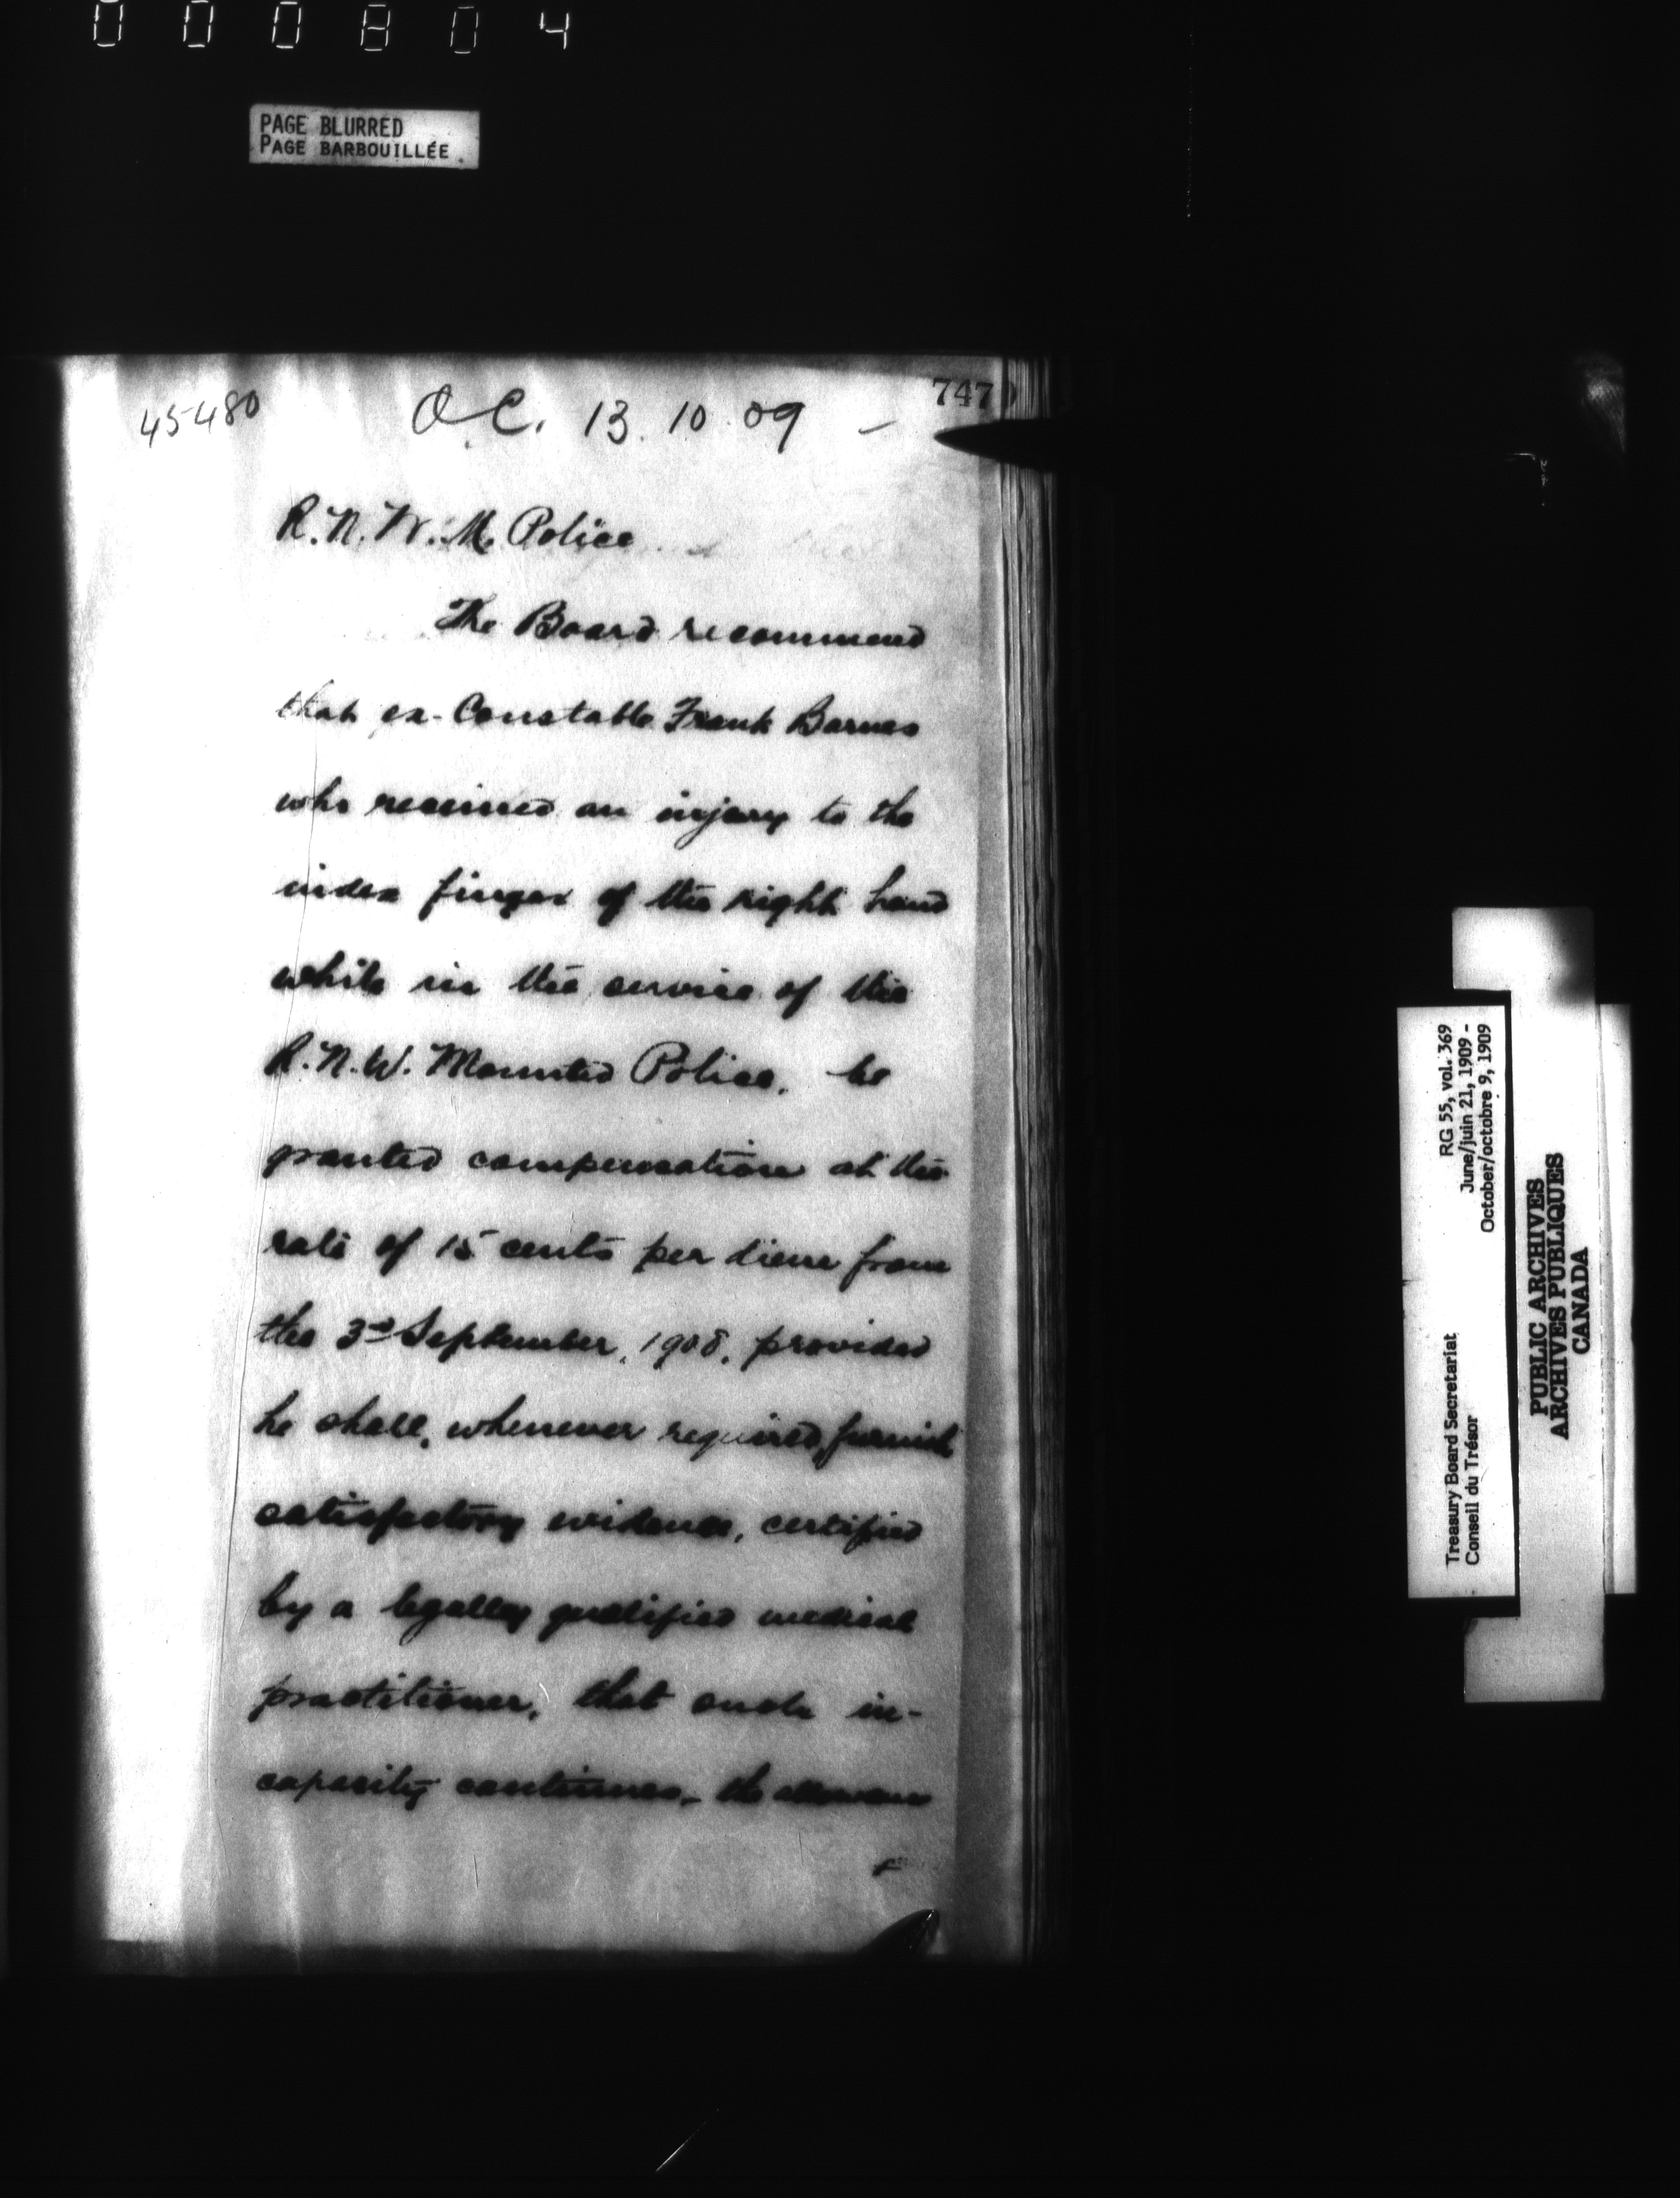 000804
PAGE BLURRED
PAGE BARBOUILLÉE
747
45480
O.C. 13.10.09 –
R.N.W.M. Police
The Board recommend
that ex-Constable Frank Barnes
who received an injury to the
index finger of the right hand
while in the service of the
R.N.W. Mounted Police, be
granted compensation at the
rate of 15 cents per diem from
the 3rd September, 1908, provided
he shall, whenever required, furnish
satisfactory evidence, certified
by a legally qualified medical
practitioner, that such in-
capacity continues, the allowance
RG 55, vol. 369
June/juin 21, 1909 -
October/octobre 9, 1909
Treasury Board Secretariat
Conseil du Trésor
PUBLIC ARCHIVES
ARCHIVES PUBLIQUES
CANADA